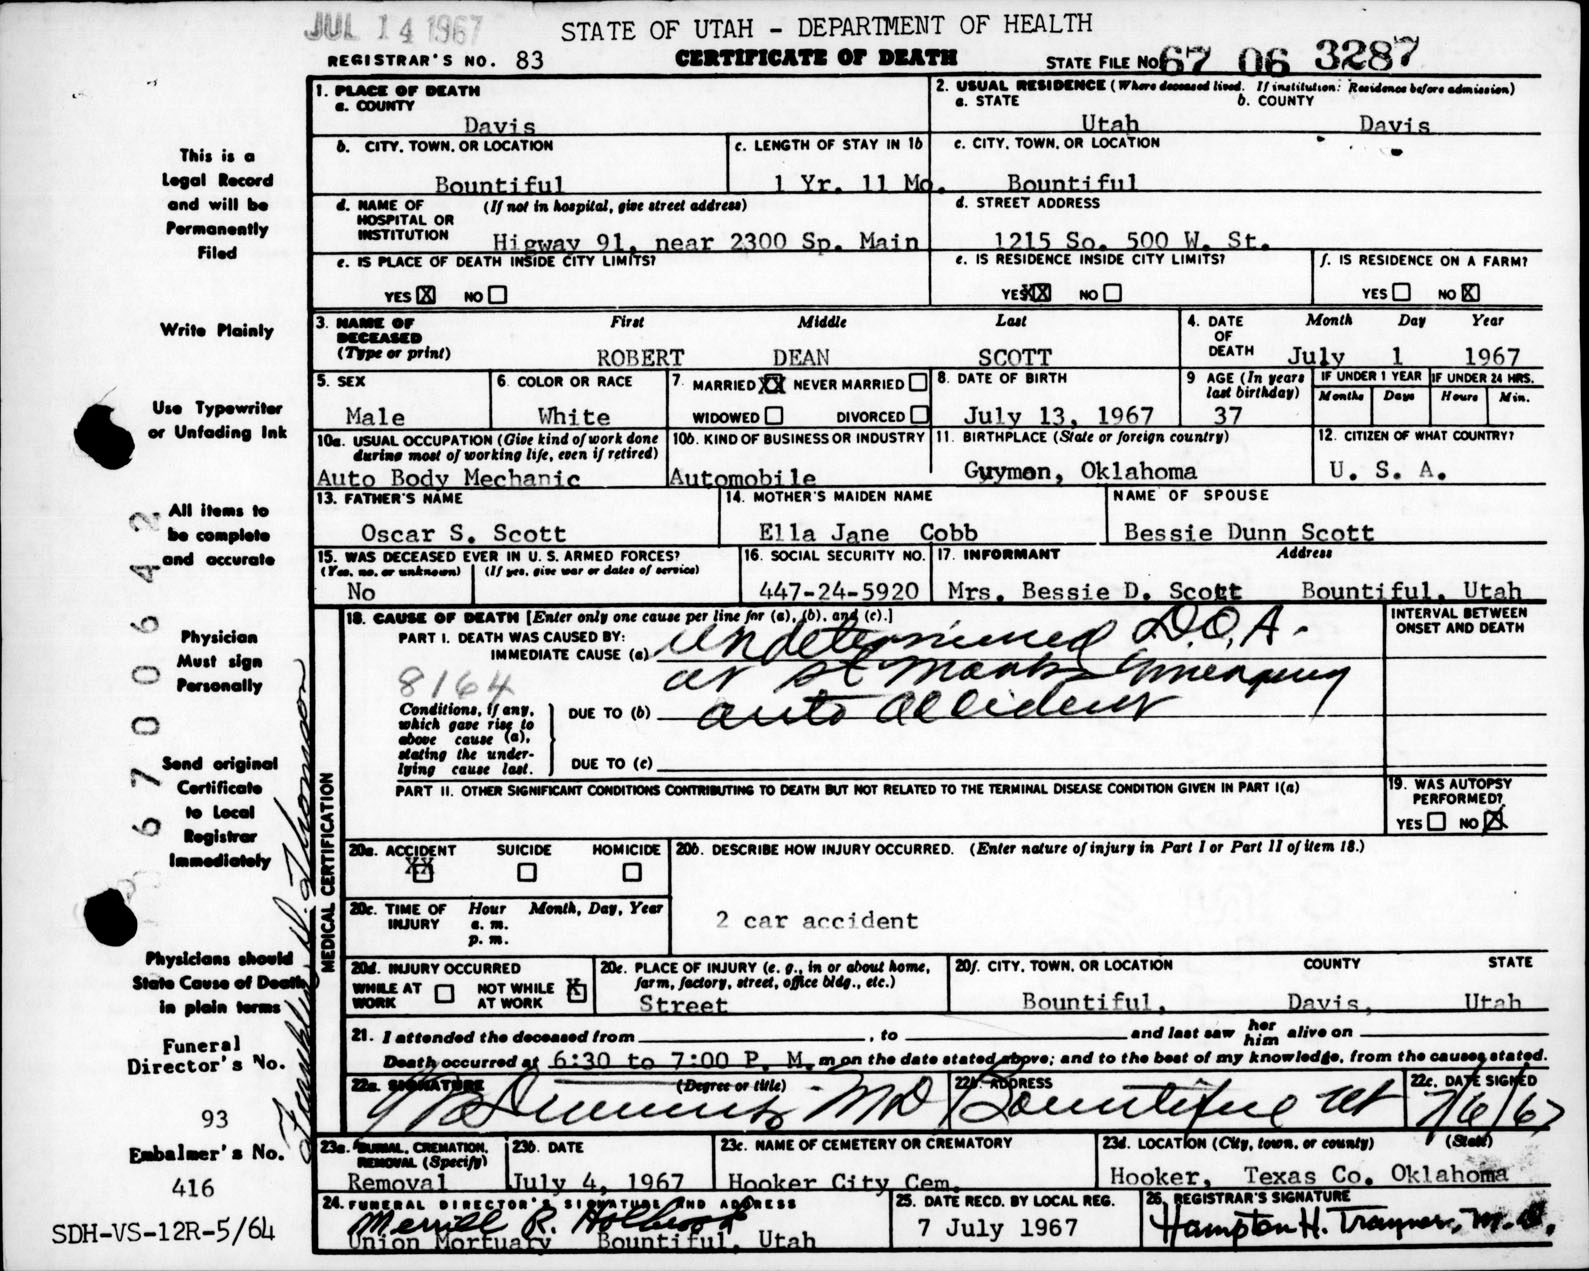 JUL 14 1967
STATE OF UTAH - DEPARTMENT OF HEALTH
REGISTRAR'S NO. 83 CERTIFICATE OF DEATH STATE FILE NO 67 06 3287
1. PLACE OF DEATH
a. COUNTY
Davis
2. USUAL RESIDENCE (Where deceased lived. If institution: Residence before admission)
a. STATE b. COUNTY
Utah Davis
b. CITY, TOWN, OR LOCATION
Bountiful
c. LENGTH OF STAY IN 1b
1 Yr. 11 Mo.
c. CITY, TOWN, OR LOCATION
Bountiful
d. NAME OF (If not in hospital, give street address)
HOSPITAL OR
INSTITUTION Higway 91, near 2300 Sp. Main
d. STREET ADDRESS
1215 So. 500 W. St.
e. IS PLACE OF DEATH INSIDE CITY LIMITS?
YES X NO
e. IS RESIDENCE INSIDE CITY LIMITS?
YES XX NO
f. IS RESIDENCE ON A FARM?
YES NO X
3. NAME OF First Middle Last
DECEASED
(Type or print) ROBERT DEAN SCOTT
4. DATE Month Day Year
OF
DEATH July 1 1967
5. SEX
Male
6. COLOR OR RACE
White
7. MARRIED XX NEVER MARRIED
WIDOWED DIVORCED
8. DATE OF BIRTH
July 13, 1967
9 AGE (In years
last birthday)
37
IF UNDER 1 YEAR IF UNDER 24 HRS.
Months Days Hours Min.
10a. USUAL OCCUPATION (Give kind of work done
during most of working life, even if retired)
Auto Body Mechanic
10b. KIND OF BUSINESS OR INDUSTRY
Automobile
11. BIRTHPLACE (State or foreign country)
Guymon, Oklahoma
12. CITIZEN OF WHAT COUNTRY?
U. S. A.
13. FATHER'S NAME
Oscar S. Scott
14. MOTHER'S MAIDEN NAME
Ella Jane Cobb
NAME OF SPOUSE
Bessie Dunn Scott
15. WAS DECEASED EVER IN U. S. ARMED FORCES?
(Yes, no, or unknown) (If yes, give war or dates of service)
No
16. SOCIAL SECURITY NO.
447-24-5920
17. INFORMANT Address
Mrs. Bessie D. Scott Bountiful, Utah
18. CAUSE OF DEATH [Enter only one cause per line for (a), (b), and (c).]
PART I. DEATH WAS CAUSED BY:
IMMEDIATE CAUSE (a) Undetermined D.O.A.
at St Marks Emergency
8164
Conditions, if any,
which gave rise to
above cause (a),
stating the under-
lying cause last.
DUE TO (b) auto accident
DUE TO (c)
INTERVAL BETWEEN
ONSET AND DEATH
PART II. OTHER SIGNIFICANT CONDITIONS CONTRIBUTING TO DEATH BUT NOT RELATED TO THE TERMINAL DISEASE CONDITION GIVEN IN PART I(a)
19. WAS AUTOPSY
PERFORMED?
YES NO X
MEDICAL CERTIFICATION
20a. ACCIDENT SUICIDE HOMICIDE
XX
20b. DESCRIBE HOW INJURY OCCURRED. (Enter nature of injury in Part I or Part II of item 18.)
2 car accident
20c. TIME OF Hour Month, Day, Year
INJURY a. m.
p. m.
20d. INJURY OCCURRED
WHILE AT NOT WHILE X
WORK AT WORK
20e. PLACE OF INJURY (e. g., in or about home,
farm, factory, street, office bldg., etc.)
Street
20f. CITY, TOWN, OR LOCATION COUNTY STATE
Bountiful, Davis, Utah
21. I attended the deceased from , to and last saw her him alive on
Death occurred at 6:30 to 7:00 P. M. m on the date stated above; and to the best of my knowledge, from the causes stated.
22a. SIGNATURE (Degree or title)
MD
22b. ADDRESS
Bountiful Ut
22c. DATE SIGNED
7/6/67
23a. BURIAL, CREMATION,
REMOVAL (Specify)
Removal
23b. DATE
July 4, 1967
23c. NAME OF CEMETERY OR CREMATORY
Hooker City Cem.
23d. LOCATION (City, town, or county) (State)
Hooker, Texas Co. Oklahoma
24. FUNERAL DIRECTOR'S SIGNATURE AND ADDRESS
Merrill R. Holbrook
Union Mortuary Bountiful, Utah
25. DATE RECD. BY LOCAL REG.
7 July 1967
26. REGISTRAR'S SIGNATURE
Hampton H. Trayner, M.D.
This is a
Legal Record
and will be
Permanently
Filed
Write Plainly
Use Typewriter
or Unfading Ink
All items to
be complete
and accurate
Physician
Must sign
Personally
Send original
Certificate
to Local
Registrar
Immediately
Physicians should
State Cause of Death
in plain terms
Funeral
Director's No.
93
Embalmer's No.
416
SDH-VS-12R-5/64
67 00642